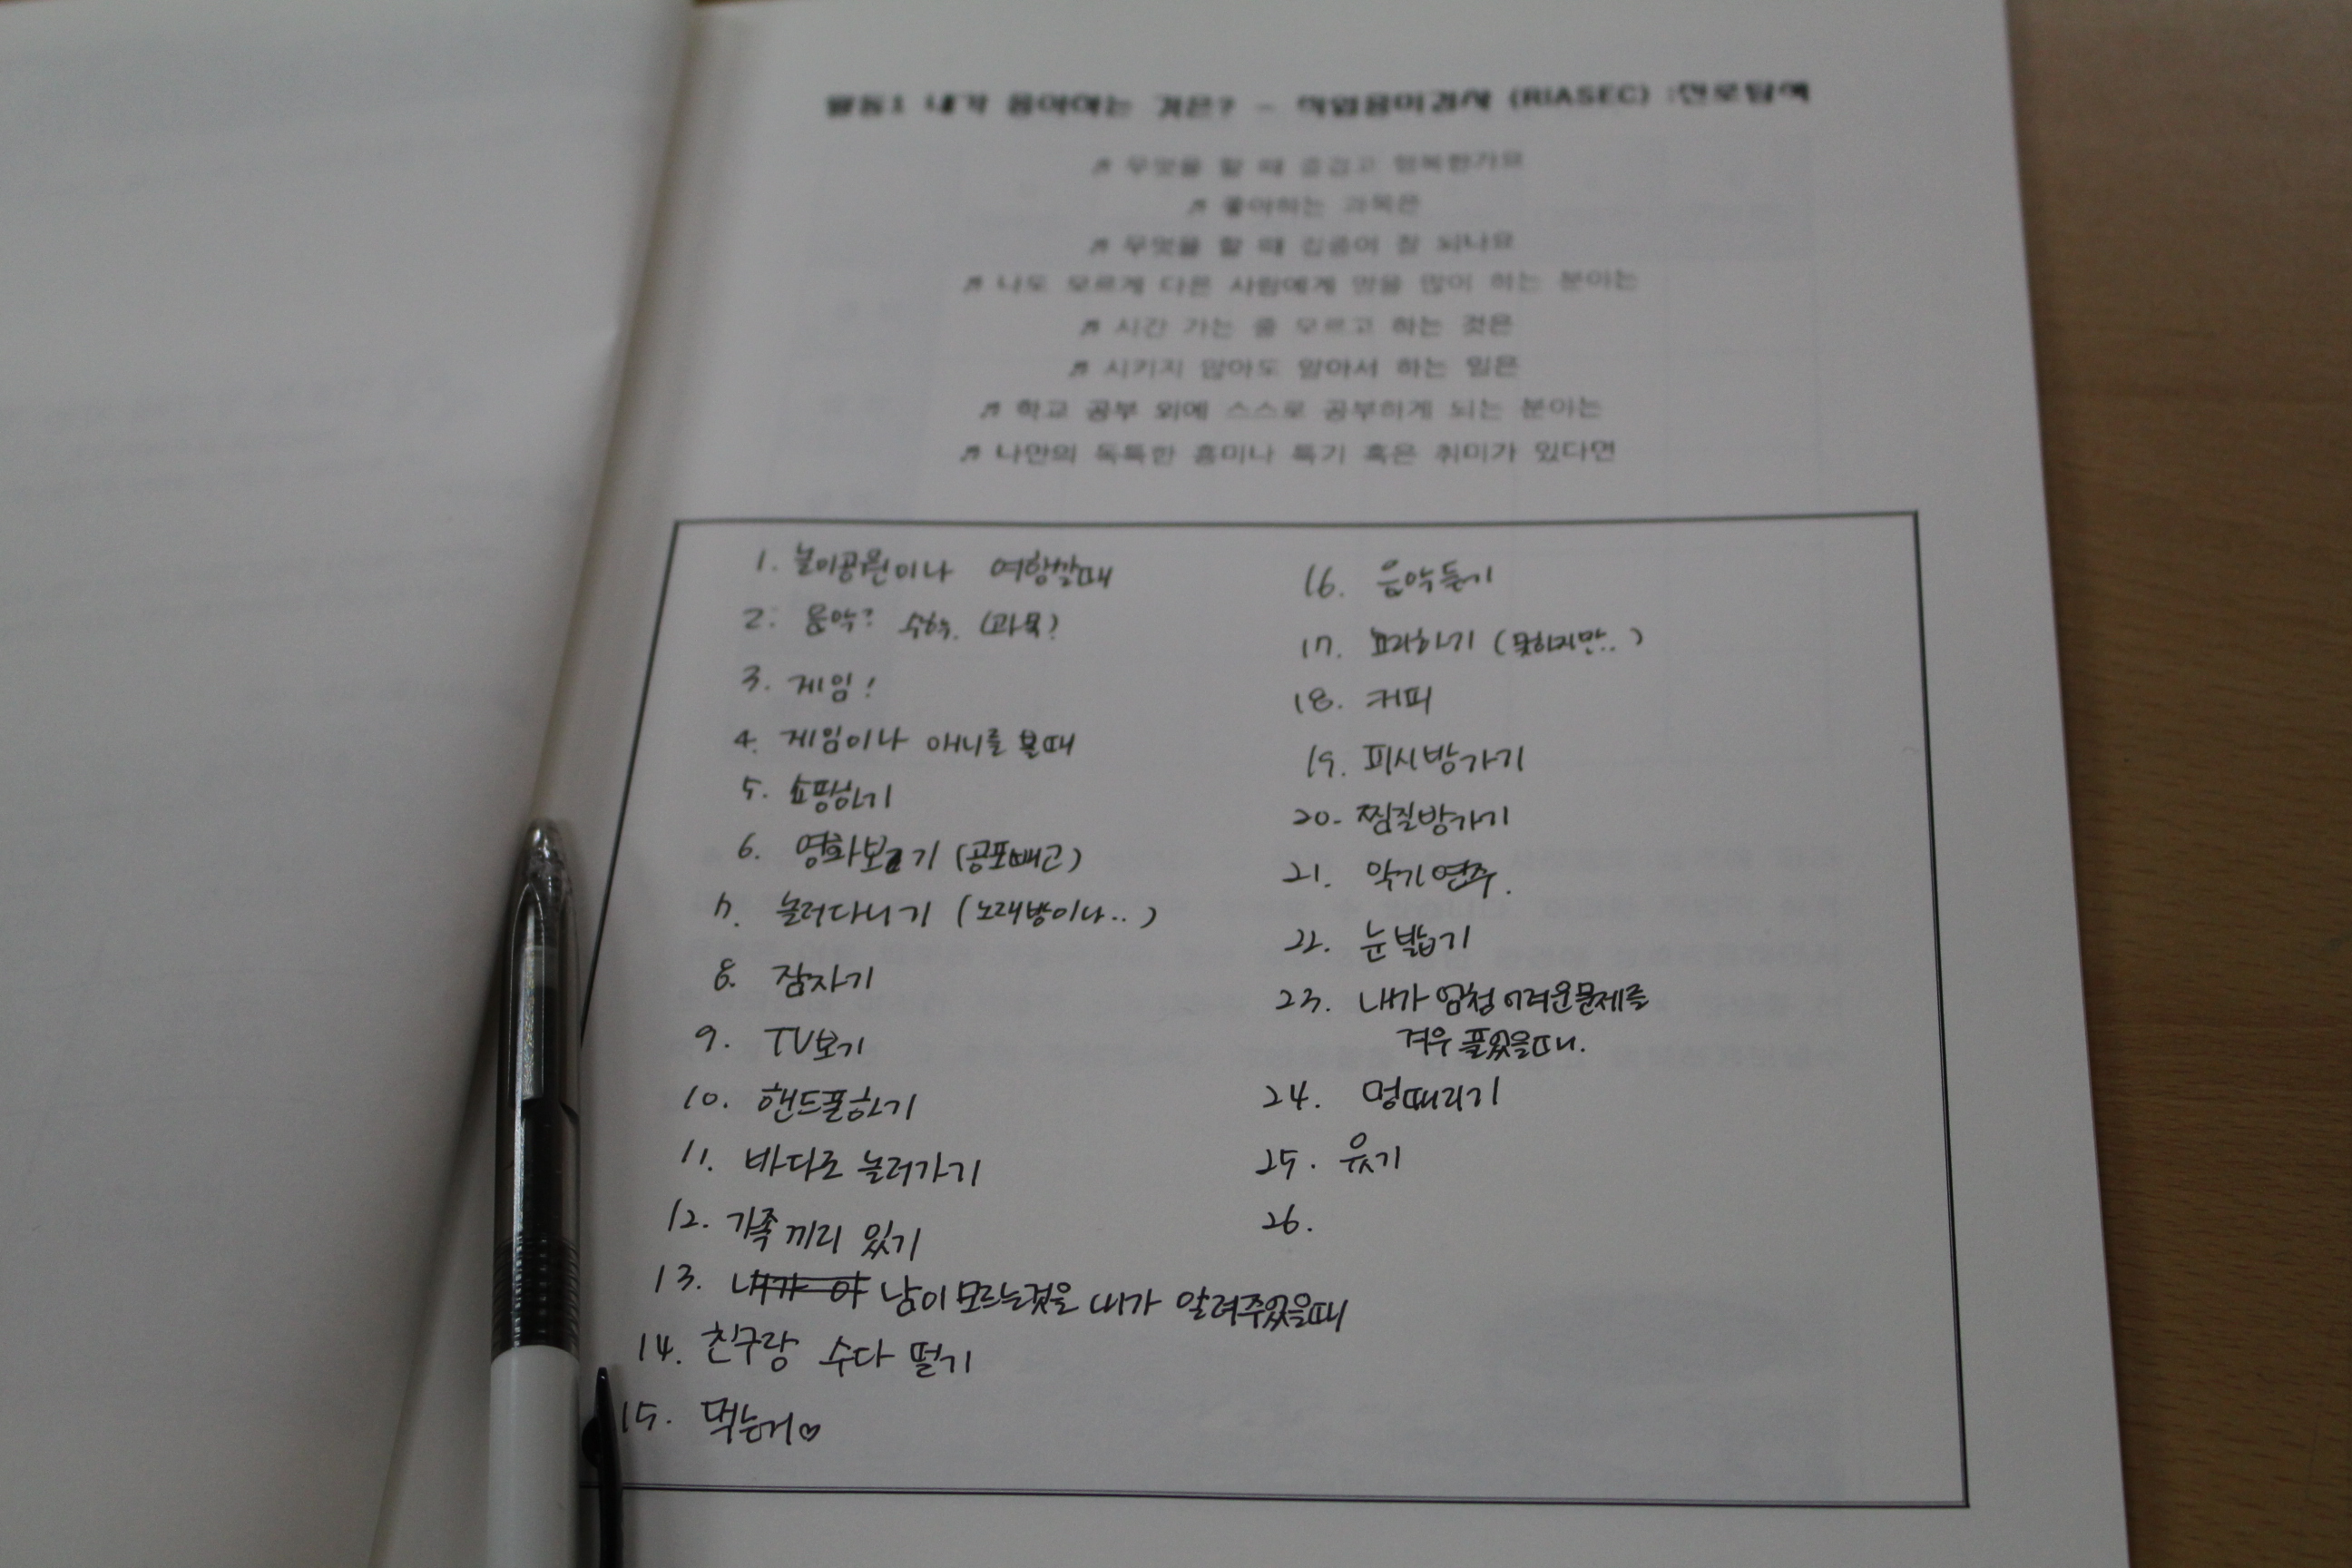 활동1 내가 좋아하는 것은? - 직업흥미검사 (RIASEC) :진로탐색
♬ 무엇을 할 때 즐겁고 행복한가요
♬ 좋아하는 과목은
♬ 무엇을 할 때 집중이 잘 되나요
♬ 나도 모르게 다른 사람에게 말을 많이 하는 분야는
♬ 시간 가는 줄 모르고 하는 것은
♬ 시키지 않아도 알아서 하는 일은
♬ 학교 공부 외에 스스로 공부하게 되는 분야는
♬ 나만의 독특한 흥미나 특기 혹은 취미가 있다면
1. 놀이공원이나 여행갈때
2. 음악? 수학. (과목?)
3. 게임!
4. 게임이나 애니를 볼때
5. 쇼핑하기
6. 영화보기 (공포빼고)
7. 놀러다니기 (노래방이나..)
8. 잠자기
9. TV보기
10. 핸드폰하기
11. 바다로 놀러가기
12. 가족끼리 있기
13. 남이 모르는것을 내가 알려주었을때
14. 친구랑 수다 떨기
15. 먹는거♡
16. 음악듣기
17. 요리하기 (못하지만..)
18. 커피
19. 피시방가기
20. 찜질방가기
21. 악기연주.
22. 눈밟기
23. 내가 엄청 어려운문제를
겨우 풀었을때.
24. 멍때리기
25. 웃기
26.